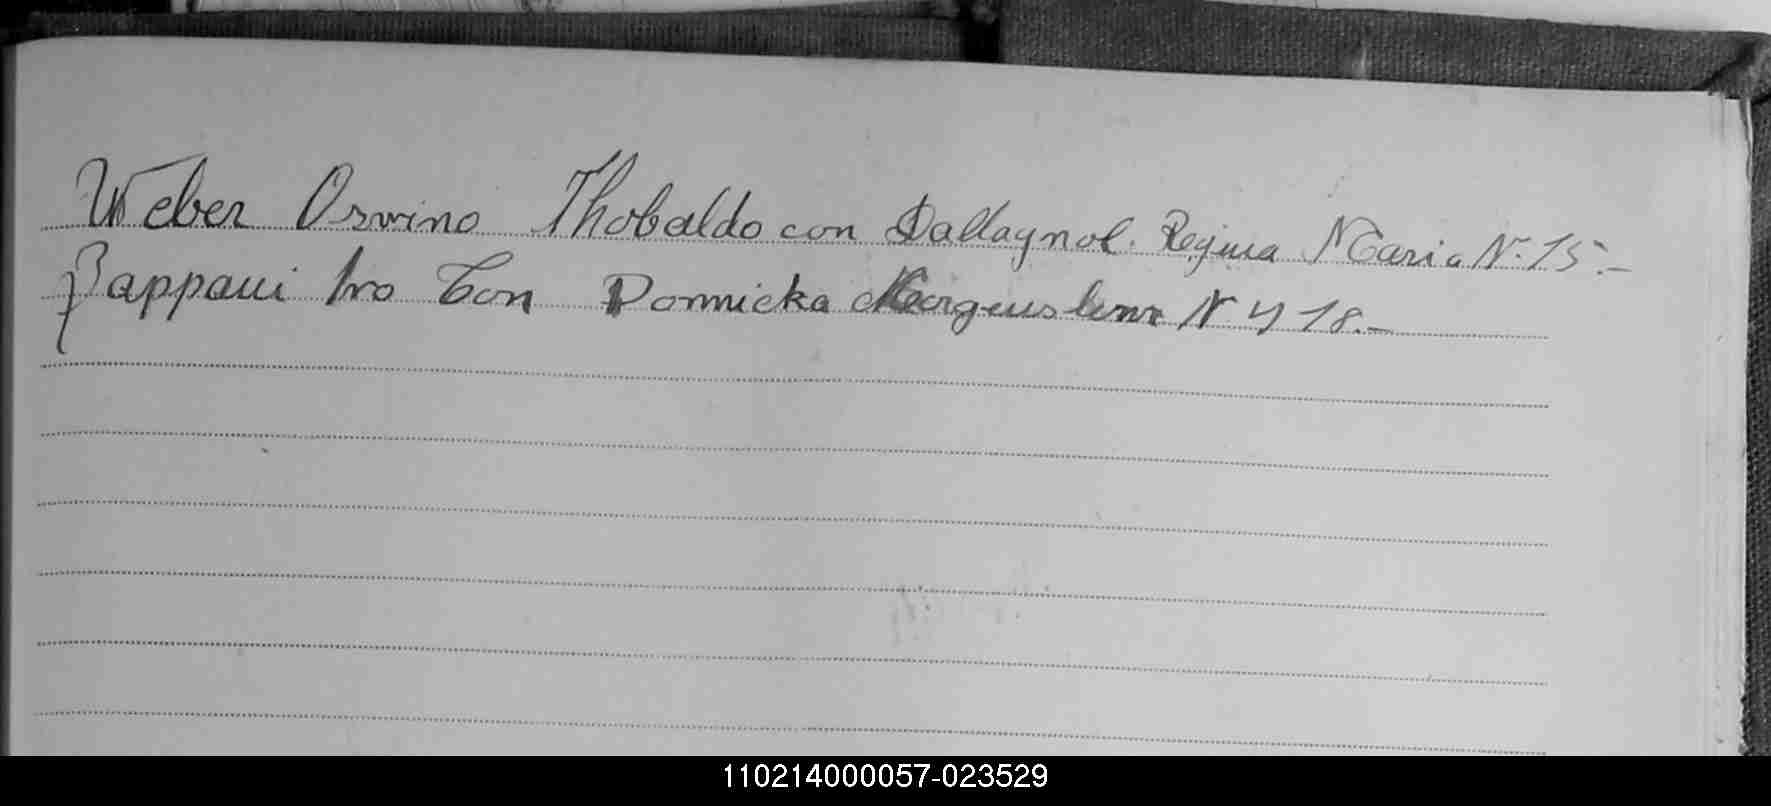 Weber Osvino Thobaldo con Dallagnol. Regina Maria N. 15.-
Zappani Ivo Con Dornicka N 18.-
110214000057-023529